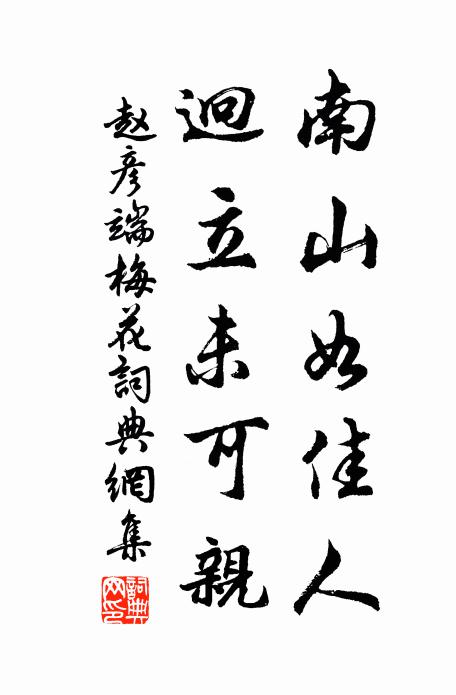 南山如佳人
迥立未可親
赵彦端梅花詞典網集
詞典網印